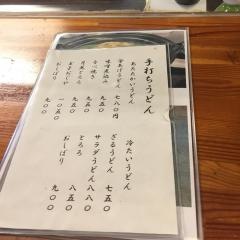 手打ちうどん
あたたかいうどん
金あげうどん 七八〇円
味噌煮込み 九五〇
なべ焼き 九五〇
月見とろろ 九五〇
玉子おじや 一〇五〇
おしぼり 九〇〇
冷たいうどん
ざるうどん 七五〇
サラダうどん 八八〇
とろろ 八五〇
おしぼり 九〇〇